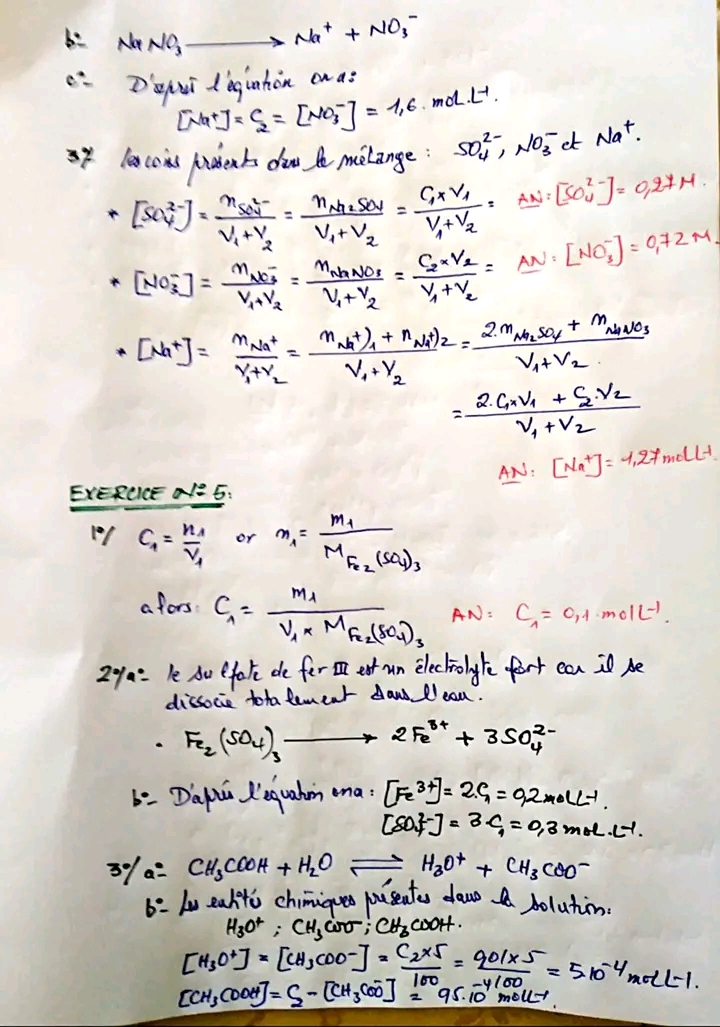 b:- NaNO₃ ⟶ Na⁺ + NO₃⁻
c:- D'après l'équation on a:
[Na⁺] = C₂ = [NO₃⁻] = 1,6 mol.L⁻¹.
3°/ les ions présents dans le mélange : SO₄²⁻, NO₃⁻ et Na⁺.
* [SO₄²⁻] = n_SO₄²⁻ / (V₁+V₂) = n_Na₂SO₄ / (V₁+V₂) = C₁×V₁ / (V₁+V₂) = AN: [SO₄²⁻] = 0,27 M.
* [NO₃⁻] = n_NO₃⁻ / (V₁+V₂) = n_NaNO₃ / (V₁+V₂) = C₂×V₂ / (V₁+V₂) = AN: [NO₃⁻] = 0,72 M.
* [Na⁺] = n_Na⁺ / (V₁+V₂) = (n_Na⁺)₁ + n_Na⁺)₂) / (V₁+V₂) = (2.n_Na₂SO₄ + n_NaNO₃) / (V₁+V₂).
= (2.C₁×V₁ + C₂.V₂) / (V₁+V₂)
AN: [Na⁺] = 1,27 mol.L⁻¹.
EXERCICE N° 5:
1°/ C₁ = n₁ / V₁ or n₁ = m₁ / M_Fe₂(SO₄)₃
alors: C₁ = m₁ / (V₁ × M_Fe₂(SO₄)₃) AN: C₁ = 0,1 mol.L⁻¹.
2°/a:- le sulfate de fer III est un électrolyte fort car il se
dissocie totalement dans l'eau.
. Fe₂(SO₄)₃ ⟶ 2Fe³⁺ + 3SO₄²⁻
b:- D'après l'équation on a : [Fe³⁺] = 2.C₁ = 0,2 mol.L⁻¹.
[SO₄²⁻] = 3.C₁ = 0,3 mol.L⁻¹.
3°/a:- CH₃COOH + H₂O ⇌ H₃O⁺ + CH₃COO⁻
b:- Les entités chimiques présentes dans la solution:
H₃O⁺ ; CH₃COO⁻ ; CH₃COOH.
[H₃O⁺] = [CH₃COO⁻] = C₂×5 / 100 = 0,01×5 / 100 = 5.10⁻⁴ mol.L⁻¹.
[CH₃COOH] = C₂ - [CH₃COO⁻] = 95.10⁻⁴ mol.L⁻¹.